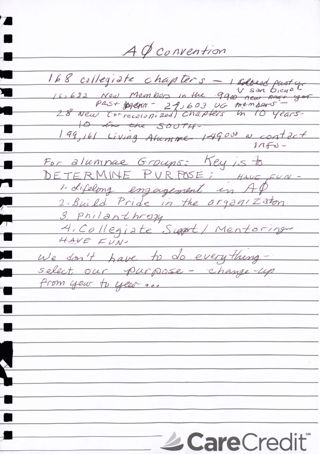 AØ Convention
168 collegiate chapters - 1 past yr
U San Diego
New Members in the past year - 24,603 UG members -
28 New (or recolonized) chapters in 10 years -
10 in the SOUTH -
199,161 Living Alumnae 149,000 w contact
info -
For alumnae Groups: Key is to
DETERMINE PURPOSE: HAVE FUN -
1. lifelong engagement in AØ
2. Build Pride in the organization
3. Philanthropy
4. Collegiate Support / Mentoring
HAVE FUN -
We don't have to do everything -
select our purpose - change-up
from year to year...
CareCredit